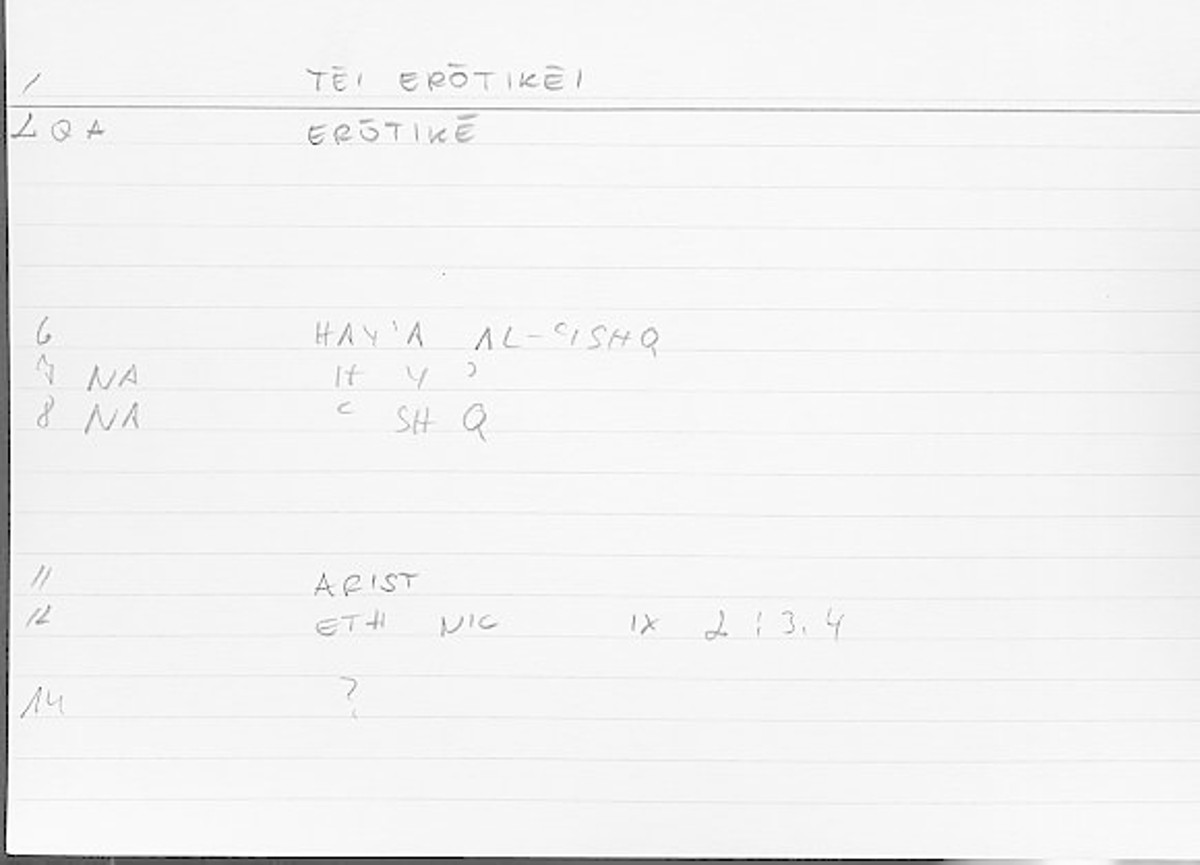 1 TĒI ERŌTIKĒI
2 Q A ERŌTIKĒ
6 HAY'A AL-ʿISHQ
7 NA H Y ʾ
8 NA ʿ SH Q
11 ARIST
12 ETH NIC IX 2 : 3.4
14 ?